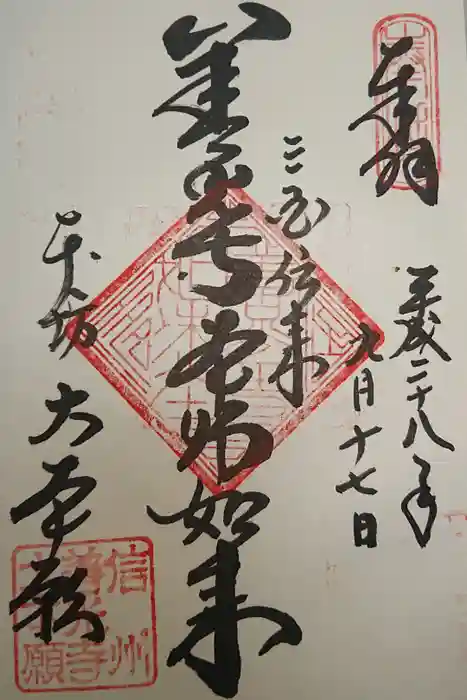 奉拝
平成二十八年
九月十七日
三国伝来
善光寺 師如来
本坊
大本願
信州
善光寺
大本願